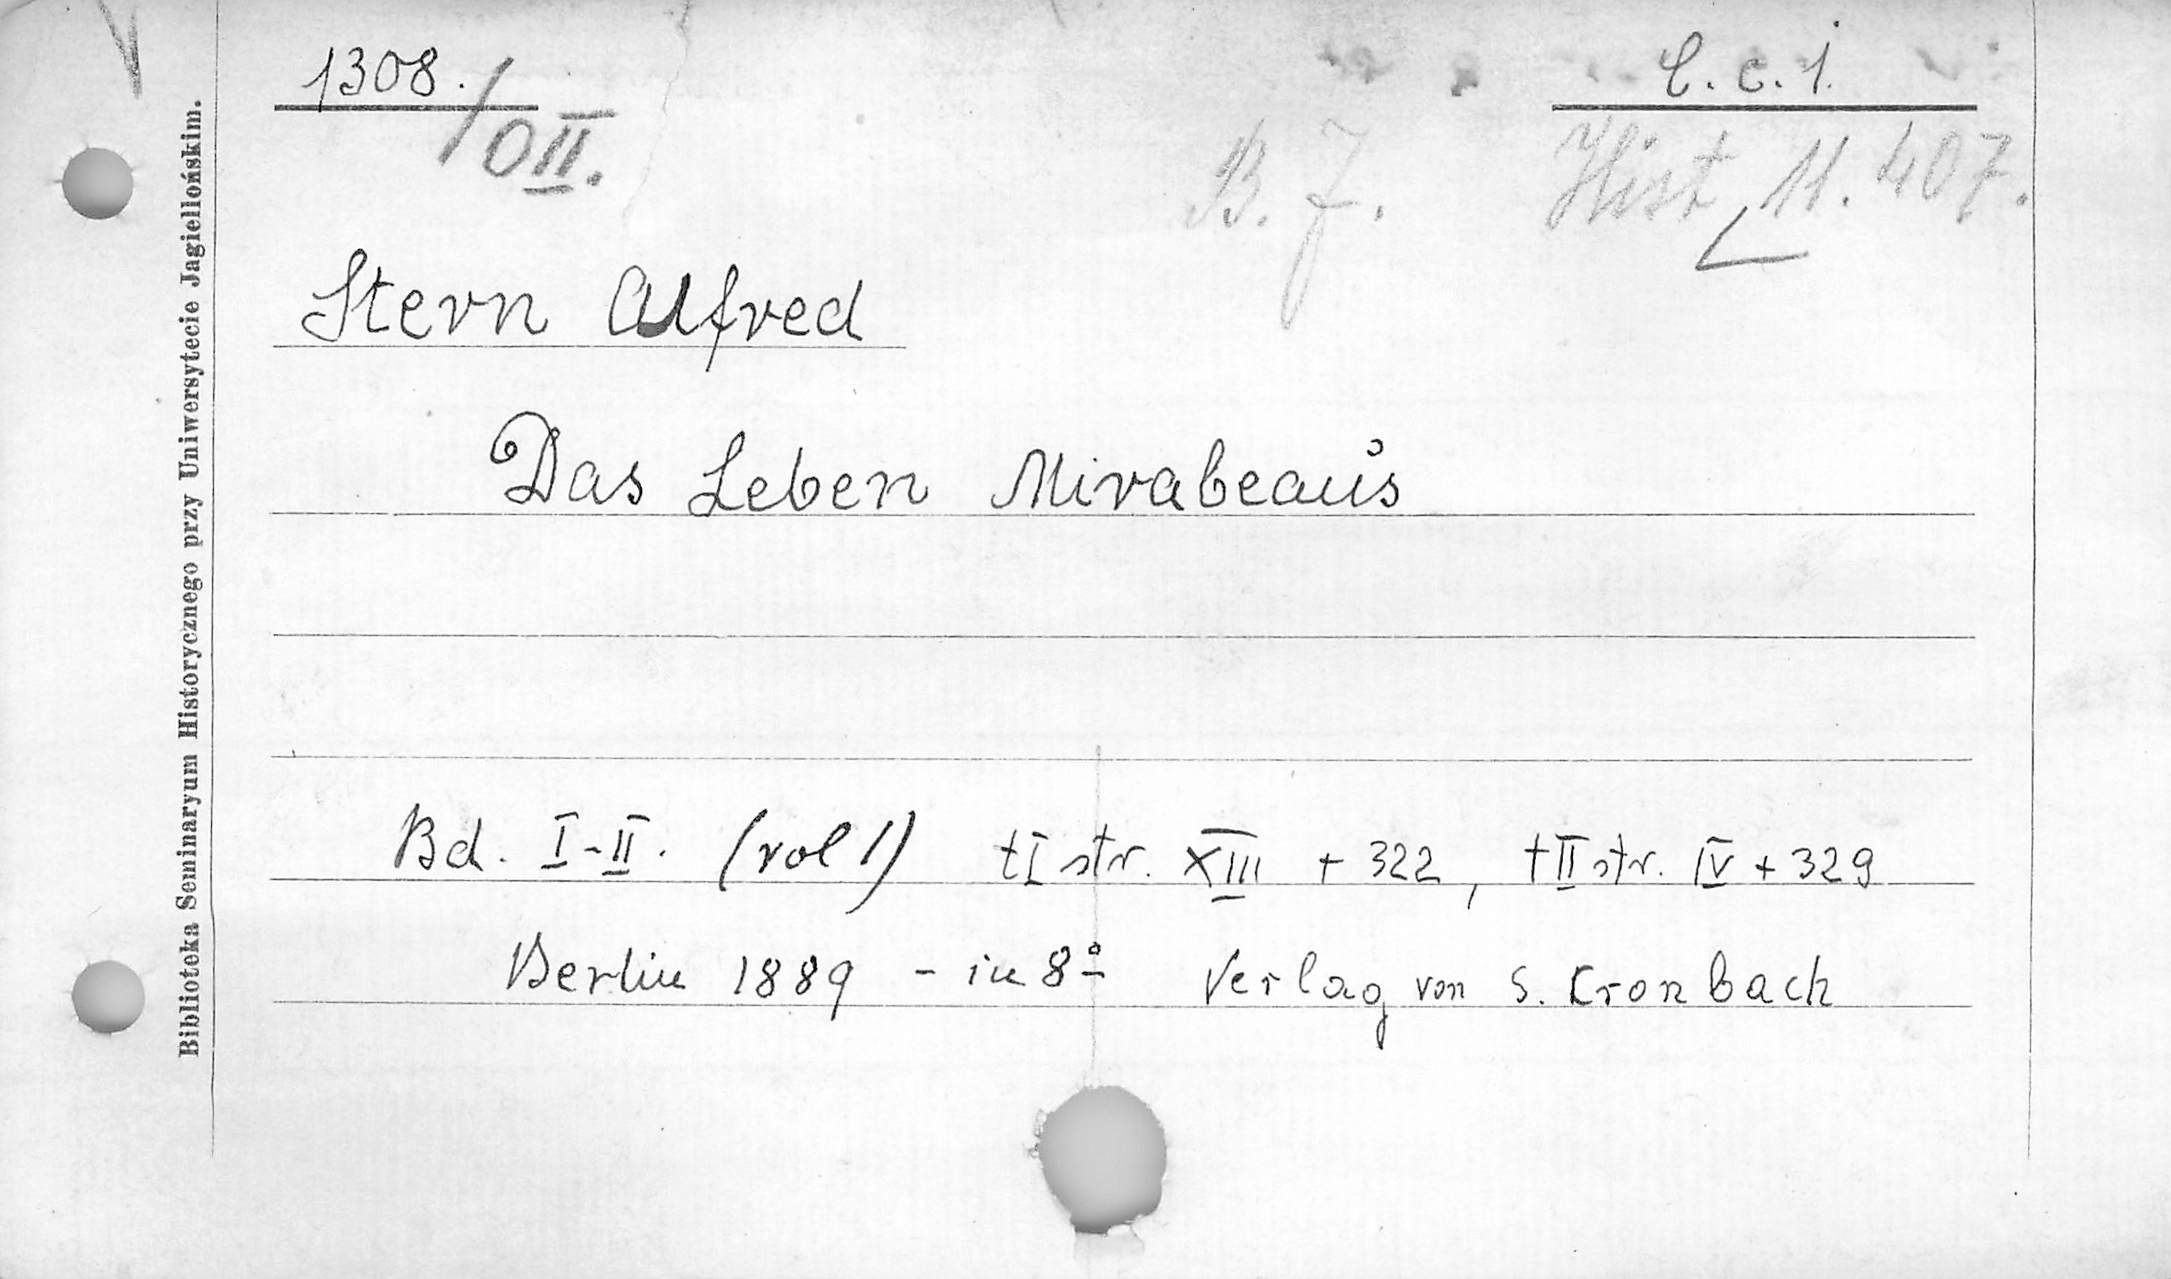 1308./OII.
C. c. 1.
B. J. Hist 11.407.
Stern Alfred
Das Leben Mirabeau's
Bd. I-II. (vol 1) t I str. XIII + 322, t II str. IV + 329
Berlin 1889 - in 8° Verlag von S. Cronbach
Biblioteka Seminaryum Historycznego przy Uniwersytecie Jagiellońskim.